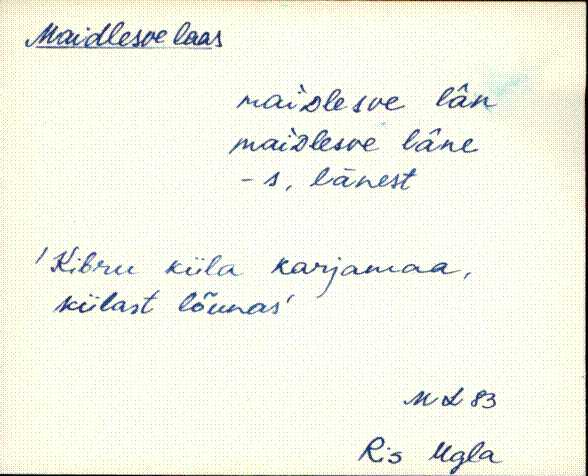 Maidlesve laas
maìdlesve lân
maìdlesve lâne
-s, lānest
'Kibru küla karjamaa,
külast lõunas'
ML 83
Ris Ugla